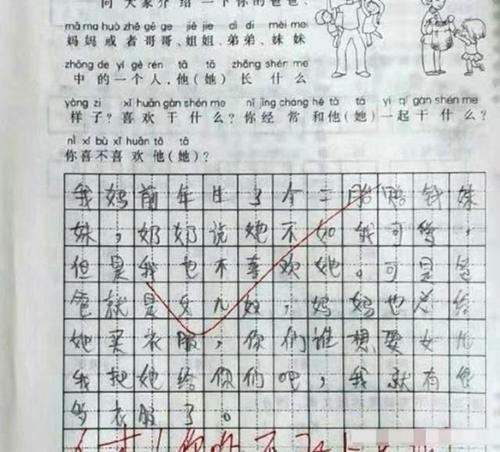 向 大家介绍一下你的爸爸、
mā ma huò zhě gē ge jiě jie dì di mèi mei
妈妈或者哥哥、姐姐、弟弟、妹妹
zhōng de yí gè rén tā tā zhǎng shén me
中的一个人,他(她)长什么
yàng zi xǐ huān gàn shén me nǐ jīng cháng hé tā tā yì qǐ gàn shén me
样子?喜欢干什么?你经常和他(她)一起干什么?
nǐ xǐ bù xǐ huān tā tā
你喜不喜欢他(她)?
我妈前年生了个二胎赔钱妹
妹,奶奶说她不如我可爱,
但是我也不喜欢她。可是爸
爸就是女儿奴,妈妈也总给
她买衣服,你们谁想要女儿
我把她给你们吧,我就有很
多衣服了。